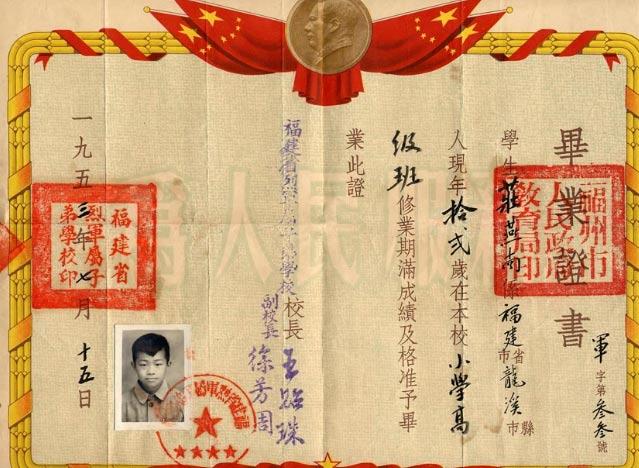 畢業證書
軍字第叁叁號
學生莊燕南係福建省市龍溪縣市
人現年拾弍歲在本校小學高
級班修業期滿成績及格准予畢
業此證
校長王
副校長徐芳周
一九五三年七月十五日
福州市人民政府教育局印
福建省烈軍屬子弟學校印
為人民服務